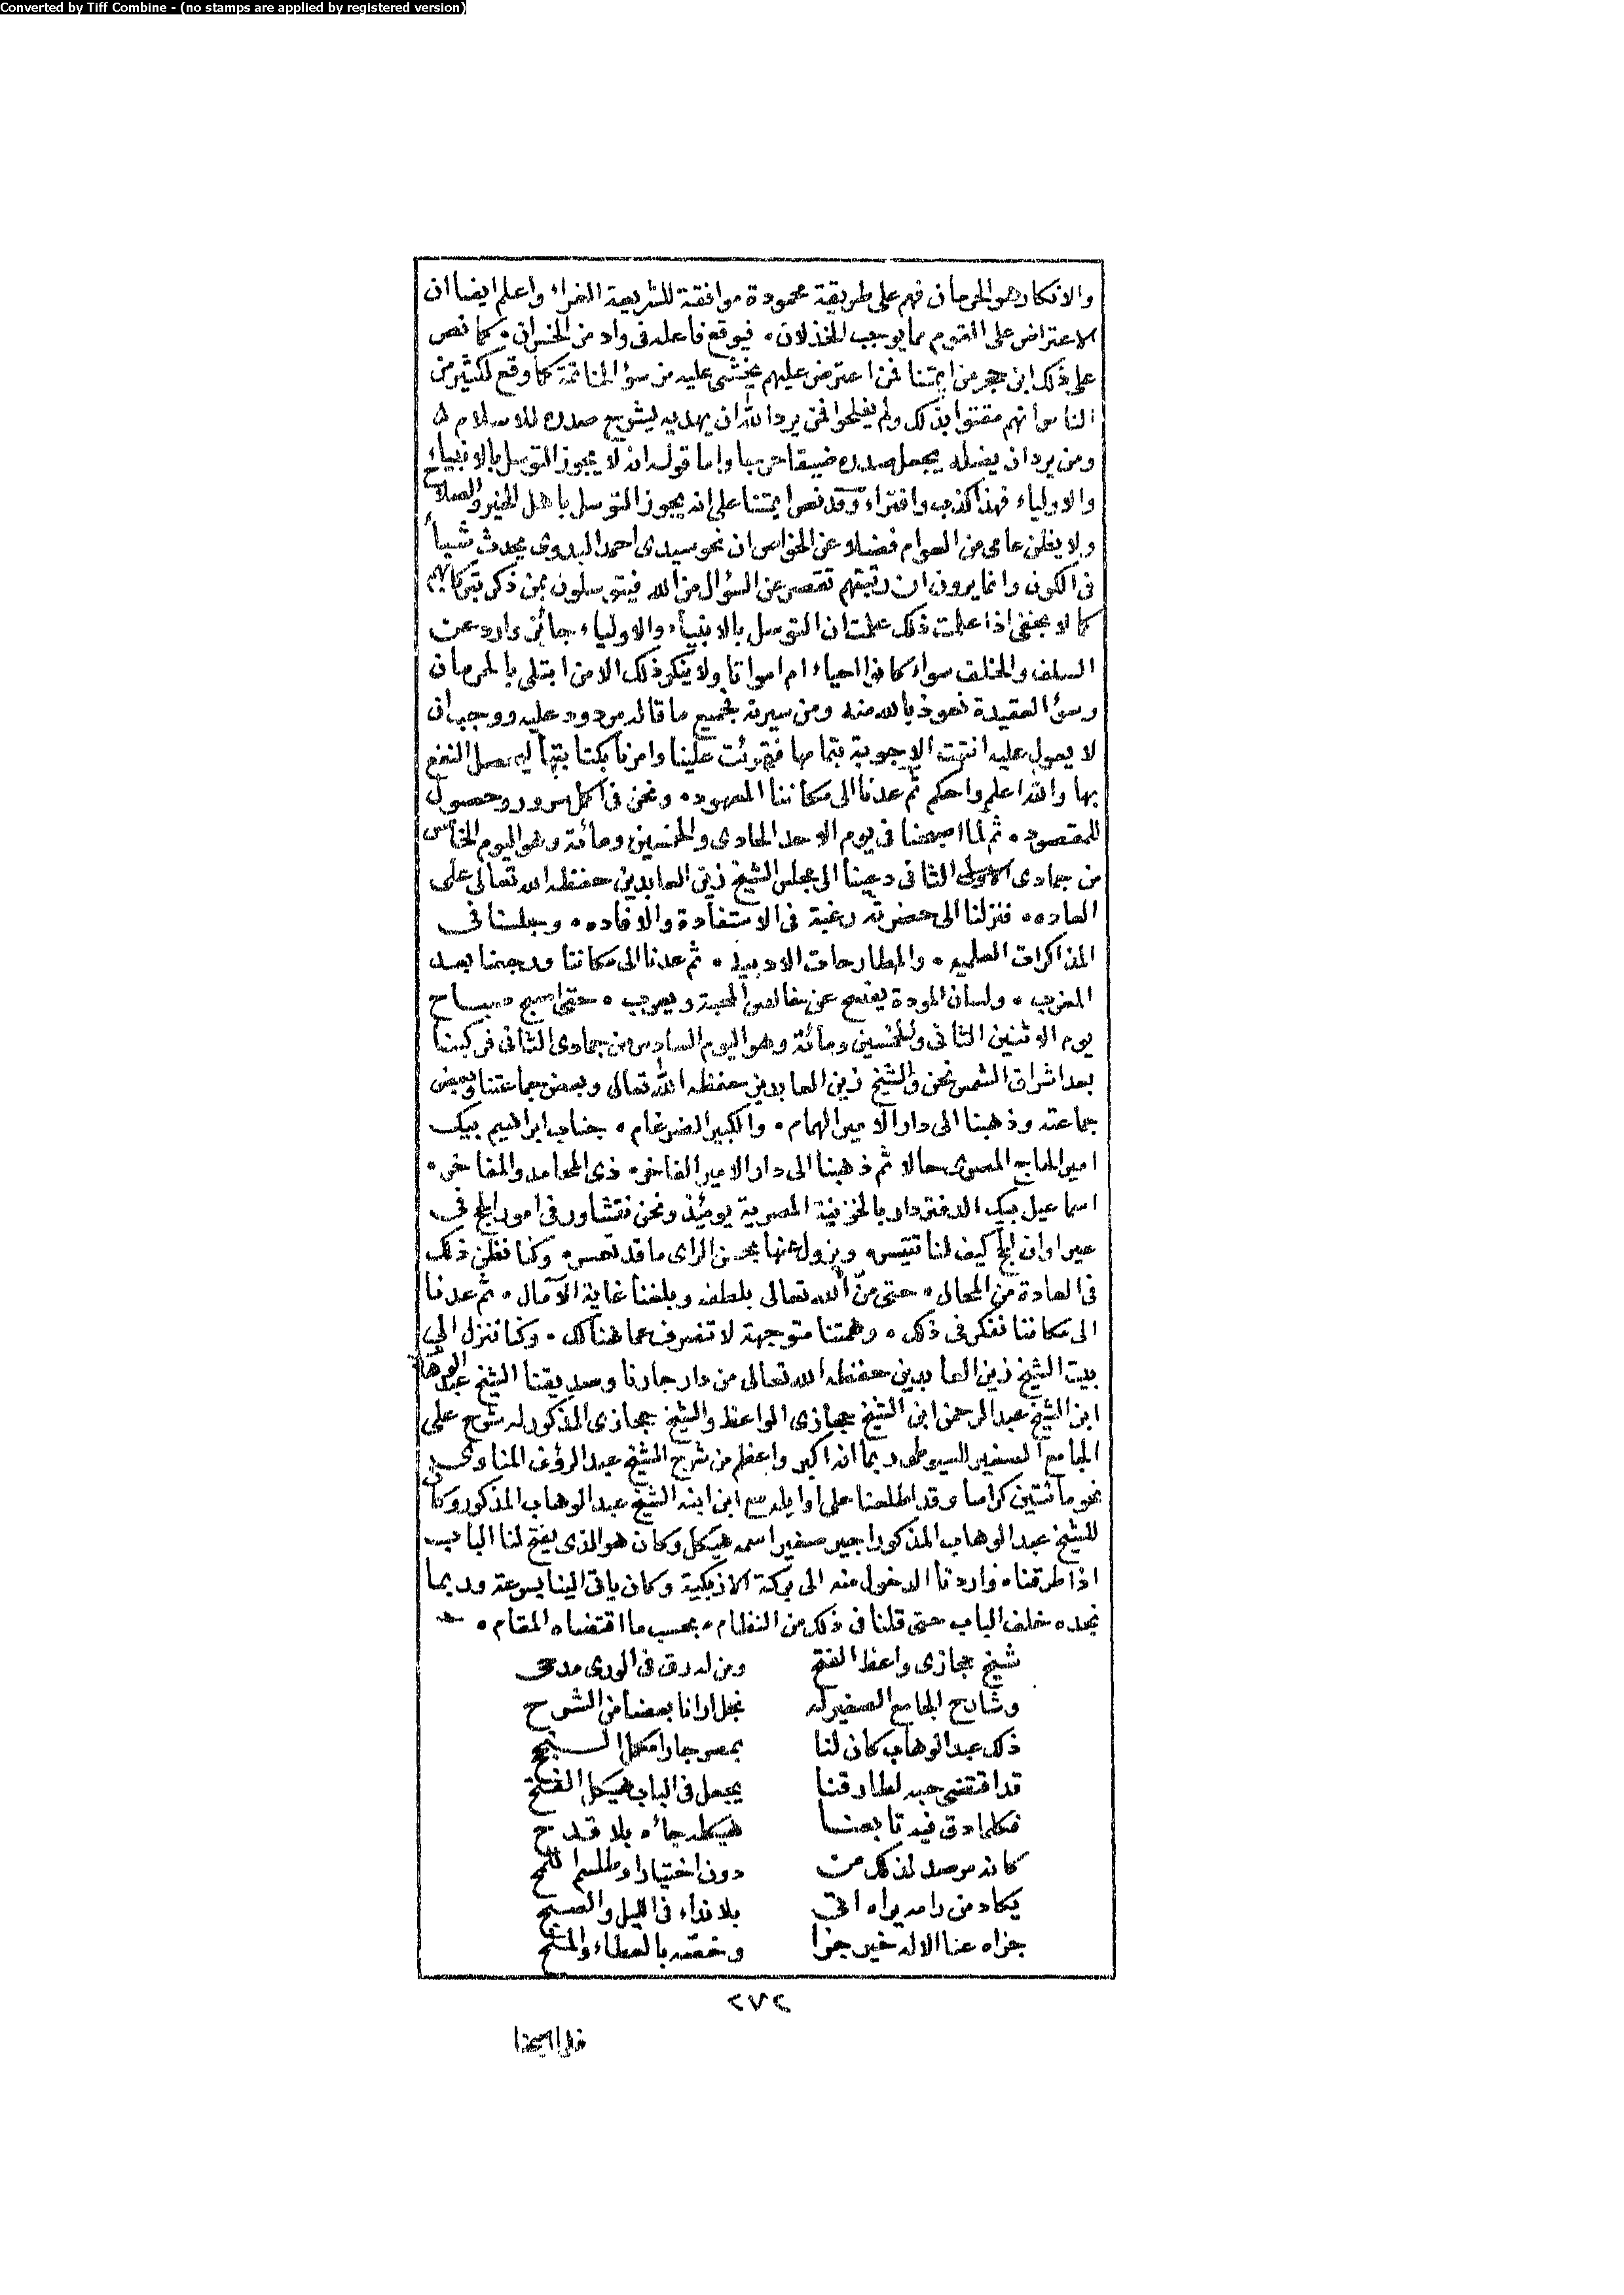 Converted by Tiff Combine - (no stamps are applied by registered version)
والانكار هو الحرمان فهم على طريقة محمودة موافقة للشريعة الغراء واعلم ايضا ان
الاعتراض على القوم مما يوجب الخذلان ٠ فيوقع فاعله فى واد من الخسران ٠ كما نص
على ذلك ابن حجر من ايمتنا فمن اعترض عليهم يخشى عليه من سؤ الخاتمة كما وقع لكثير من
الناس انهم مقتوا بذلك ولم يفلحوا فمن يرد الله ان يهديه يشرح صدره للاسلام
ومن يرد ان يضله يجعل صدره ضيقا حرجا واما قوله انه لا يجوز التوسل بالانبياء
والاولياء فهذا كذب وافتراء وقد نص ايمتنا على انه يجوز التوسل باهل الخير والصلاح
ولا يظن عامى من العوام فضلا عن الخواص ان نحو سيدى احمد البدوى يحدث شيأ
فى الكون وانما يرون ان رتبتهم تقصر عن السؤال من الله فيتوسلون بمن ذكر تبركا بهم
كما لا يخفى اذا علمت ذلك علمت ان التوسل بالانبياء والاولياء جائز وارد عن
السلف والخلف سواء كانوا احياء ام امواتا ولا ينكر ذلك الا من ابتلى بالحرمان
وسؤ العقيدة نعوذ بالله منه ومن سيرته فجميع ما قاله مردود عليه ووجب ان
لا يعول عليه انتهت الاجوبة بتمامها فقرئت علينا وامرنا بكتابتها ليحصل النفع
بها والله اعلم واحكم ثم عدنا الى مكاننا المعهود ٠ ونحن فى اكمل سرور وحصول
المقصود ٠ ثم لما اصبحنا فى يوم الاحد الحادى والخمسين ومائة وهو اليوم الخامس
من جمادى الثانى دعينا الى مجلس الشيخ زين العابدين حفظه الله تعالى على
العاده ٠ فنزلنا الى حضرته رغبة فى الاستفادة والافاده ٠ وجلسنا فى
المذاكرات العلميه ٠ والمطارحات الادبيه ٠ ثم عدنا الى مكاننا ورجعنا بعد
المغرب ٠ ولسان المودة يفصح عن خالص المحبة ويعرب ٠ حتى اصبح صباح
يوم الاثنين الثانى والخمسين ومائة وهو اليوم السادس من جمادى الثانى فركبنا
بعد اشراق الشمس نحن والشيخ زين العابدين حفظه الله تعالى وبعض جماعتنا وبعض
جماعته وذهبنا الى دار الامير الهمام ٠ والكبير الضرغام ٠ جناب ابراهيم بيك
امير الحاج المصرى حالا ثم ذهبنا الى دار الامير الفاخر ٠ ذى المحامد والمفاخر ٠
اسماعيل بيك الدفتردار بالخزينة المصرية يومئذ ونحن نتشاور فى امور الحج فى
غير اوان الحج كيف لنا تتيسر ويزول عنها بحسن الراى ما قد تعسر ٠ وكنا نظن ذلك
فى العادة من المحال ٠ حتى منّ الله تعالى بلطفه وبلغنا غاية الآمال ٠ ثم عدنا
الى مكاننا نفكر فى ذلك ٠ وهمتنا متوجهة لا تنصرف عما هنالك ٠ وكنا ننزل الى
بيت الشيخ زين العابدين حفظه الله تعالى من دار جارنا وصديقنا الشيخ عبد الوهاب
ابن الشيخ عبد الرحمن ابن الشيخ حجازى الواعظ والشيخ حجازى المذكور له شرح على
الجامع الصغير للسيوطى وربما انه اكبر واعظم من شرح الشيخ عبد الرؤف المناوى
نحو مائتين كراسا وقد اطلعنا على اوايله مع ابن ابنه الشيخ عبد الوهاب المذكور وكان
للشيخ عبد الوهاب المذكور اجير صغير اسمه هيكل وكان هو الذى يفتح لنا الباب
اذا طرقناه واردنا الدخول منه الى بركة الازبكية وكان ياتى الينا بسرعة وربما
نجده خلف الباب حتى قلنا فى ذلك من النظام ٠ بحسب ما اقتضاه المقام ٠
شيخ حجازى واعظ الفتح ومن له رق فى الورى مدحى
وشارح الجامع الصغير له نجل ارانا بعضا من الشرح
ذلك عبد الوهاب كان لنا بمصر جارا مكمل
قد اقتضى حبه لطارقنا يجعل فى الباب هيكل الفتح
فكلما دق فيه تابعنا هيكله جاءه بلا قدح
كانه مرصد لذلك من دون اختيار وطلسم
يكاد من رامه يراه اتى بلا نداء فى الليل والصبح
جزاه عنا الاله خير جزا وخصّه بالعطاء والمنح
٢٧٢
فلما اصبحنا